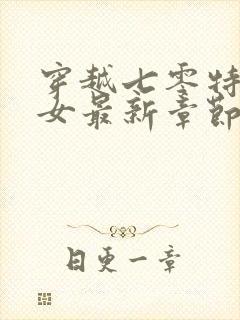 穿越七零特
女最新章節
日更一章